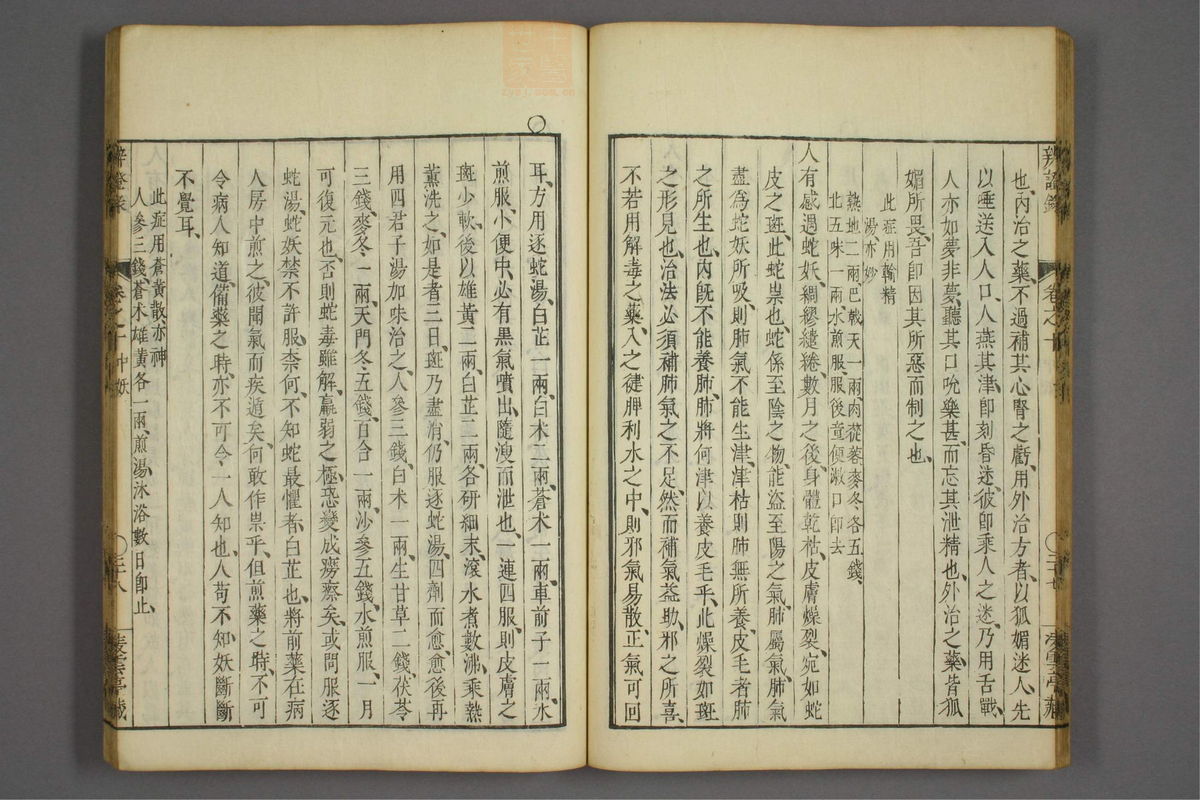 辨證錄
卷之十
二十七
也、內治之藥、不過補其心腎之虧、用外治方者、以狐媚迷人、先
以唾送入人口、人燕其津、卽刻昏迷、彼卽乘人之迷、乃用舌戰、
人亦如夢非夢、聽其口吮樂甚、而忘其泄精也、外治之藥、皆狐
媚所畏、吾卽因其所惡而制之也、
此症用輸精
湯亦妙
熱地二兩、巴戟天一兩、肉蓯蓉麥冬各五錢、
北五味一兩、水煎服、服後童便漱口卽去
人有感遇蛇妖、綢繆繾綣、數月之後、身體乾枯、皮膚燥裂、宛如蛇
皮之斑、此蛇祟也、蛇係至陰之物、能盜至陽之氣、肺屬氣、肺氣
盡爲蛇妖所吸、則肺氣不能生津、津枯則肺無所養、皮毛者肺
之所生也、內旣不能養肺、肺將何津以養皮毛乎、此燥裂如斑
之形見也、治法必須補肺氣之不足、然而補氣益助邪之所喜、
不若用解毒之藥、入之健脾利水之中、則邪氣易散、正氣可回
○
耳、方用逐蛇湯、白芷一兩、白朮二兩、蒼朮一兩、車前子一兩、水
煎服、小便中必有黑氣噴出、隨溲而泄也、一連四服、則皮膚之
斑少軟、後以雄黃二兩、白芷二兩、各研細末、滾水煮數沸、乘熱
薰洗之、如是者三日、斑乃盡消、仍服逐蛇湯、四劑而愈、愈後再
用四君子湯加味治之、人參三錢、白朮一兩、生甘草二錢、茯苓
三錢、麥冬一兩、天門冬五錢、百合一兩、沙參五錢、水煎服、一月
可復元也、否則蛇毒雖解、羸弱之極、恐變成癆瘵矣、或問服逐
蛇湯、蛇妖禁不許服、柰何、不知蛇最懼者、白芷也、將前藥在病
人房中煎之、彼聞氣而疾遁矣、何敢作祟乎、但煎藥之時、不可
令病人知道、備藥之時、亦不可令一人知也、人苟不知、妖斷斷
不覺耳、
此症用蒼黃散亦神
人參三錢、蒼朮雄黃各一兩、煎湯沐浴數日卽止、
辨證錄
卷之十
中妖
○三八